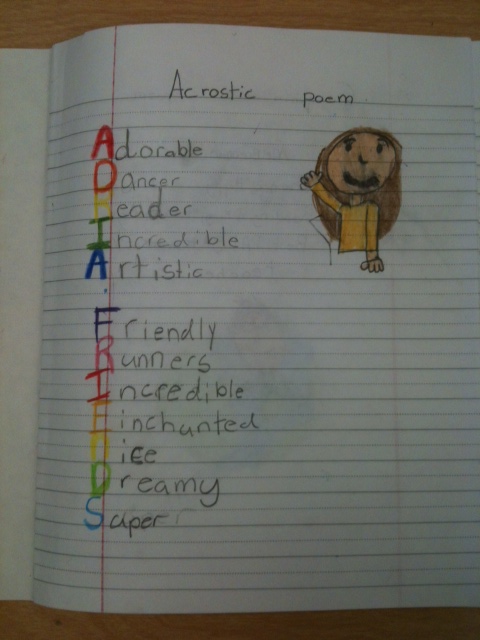 Acrostic poem
Adorable
Dancer
Incredible
Artistic
Friendly
Runners
Incredible
Einchanted
Nice
Dreamy
Super